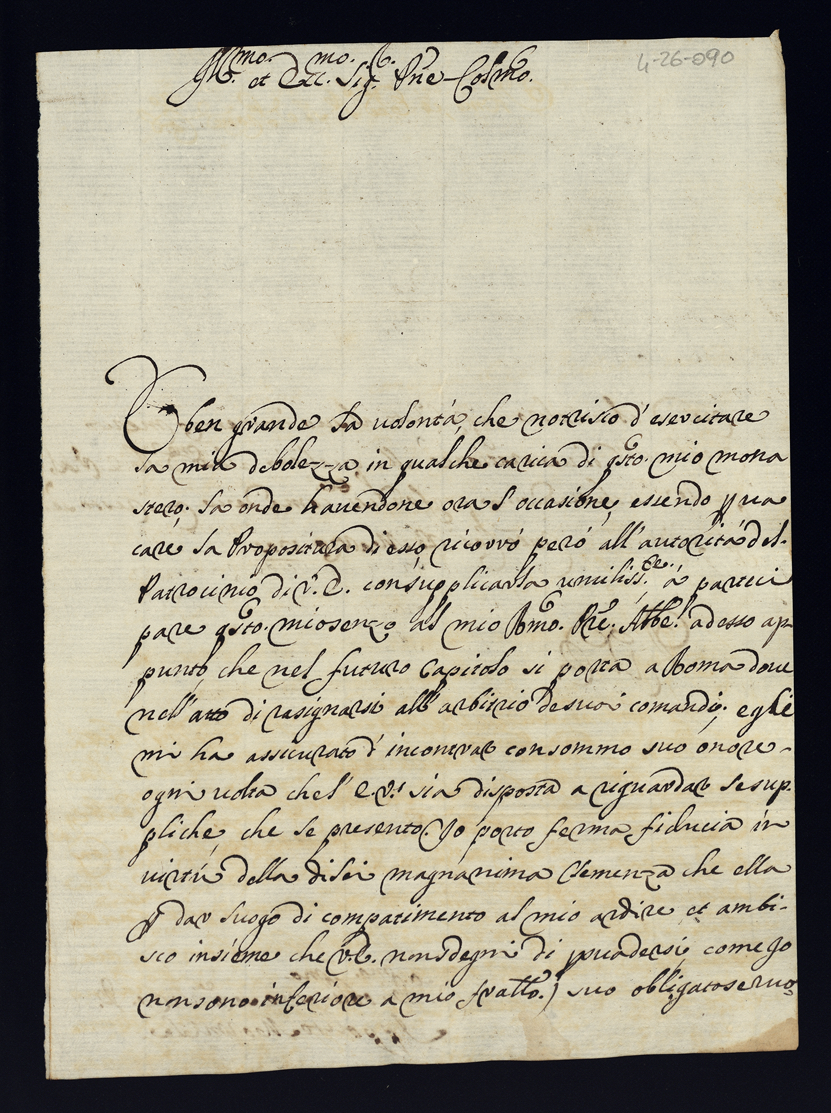 Ill.mo et Ecc.mo Sig.r Pne Cosmo.
4-26-090
E ben grande la volontà, che notrisco d'esercitare
la mia debolezza in qualche carica di qsto mio mona
stero. La onde havendone ora l'occasione, essendo p va
care la Propositura di esso, ricorro però all'autorità del
Patrocinio di V. E. con supplicarla umiliss.te à parteci
pare qsto mio senzo al mio Rmo. Pre. Abbe. adesso ap-
punto, che nel futuro Capitolo si porta a Roma dove
nell'atto di rasignarsi all'arbitrio de suoi comandi, egli
mi ha assicurato d'incontrar con sommo suo onore
ogni volta che l'E. V. sia disposta a riguardar le sup-
pliche, che le presento. Io porto ferma fiducia in
virtù della di lei magnanima Clemenza che ella
p dar luogo di compatimento al mio ardire et ambi-
sco insieme che V. E. non sdegni di psuadersi, come Io
non sono inferiore a mio fratllo.) suo obligato servo